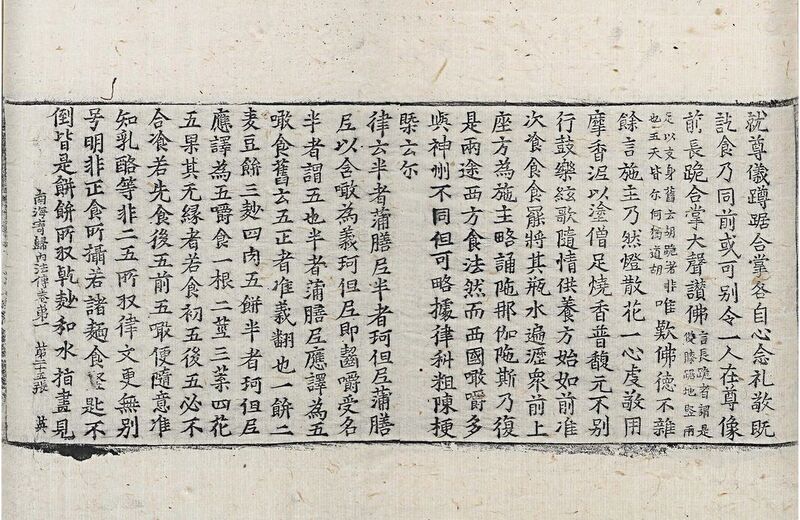 就尊儀蹲踞合掌各自心念礼敬既
訖食乃同前或可別令一人在尊像
前長跪合掌大聲讃佛言長跪者謂是雙膝踞地竪兩
足以支身舊云胡跪者非也五天皆尓何獨道胡唯歎佛德不雜
餘言施主乃然燈散花一心虔敬用
摩香泥以塗僧足燒香普馥元不別
行鼓樂絃歌隨情供養方始如前准
次飡食食罷將其瓶水遍瀝衆前上
座方為施主略誦陁那伽陁斯乃復
是兩途西方食法然而西國噉嚼多
與神州不同但可略據律科粗陳梗
槩云尓
律云半者蒲膳尼半者珂但尼蒲膳
尼以含噉為義珂但尼即齧嚼受名
半者謂五也半者蒲膳尼應譯為五
噉食舊云五正者准義翻也一餅二
麦豆餅三麨四肉五餅半者珂但尼
應譯為五嚼食一根二莖三葉四花
五果其无緣者若食初五後五必不
合飡若先食後五前五噉便隨意准
知乳酪等非二五所収律文更無別
号明非正食所攝若諸麺食竪匙不
倒皆是餅餅所収乹麨和水指畫見
南海寄歸内法傳卷第一 第二十五張 英